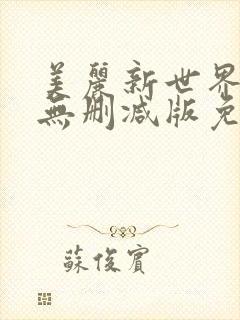 美麗新世界
無刪减版免
蘇俊賓